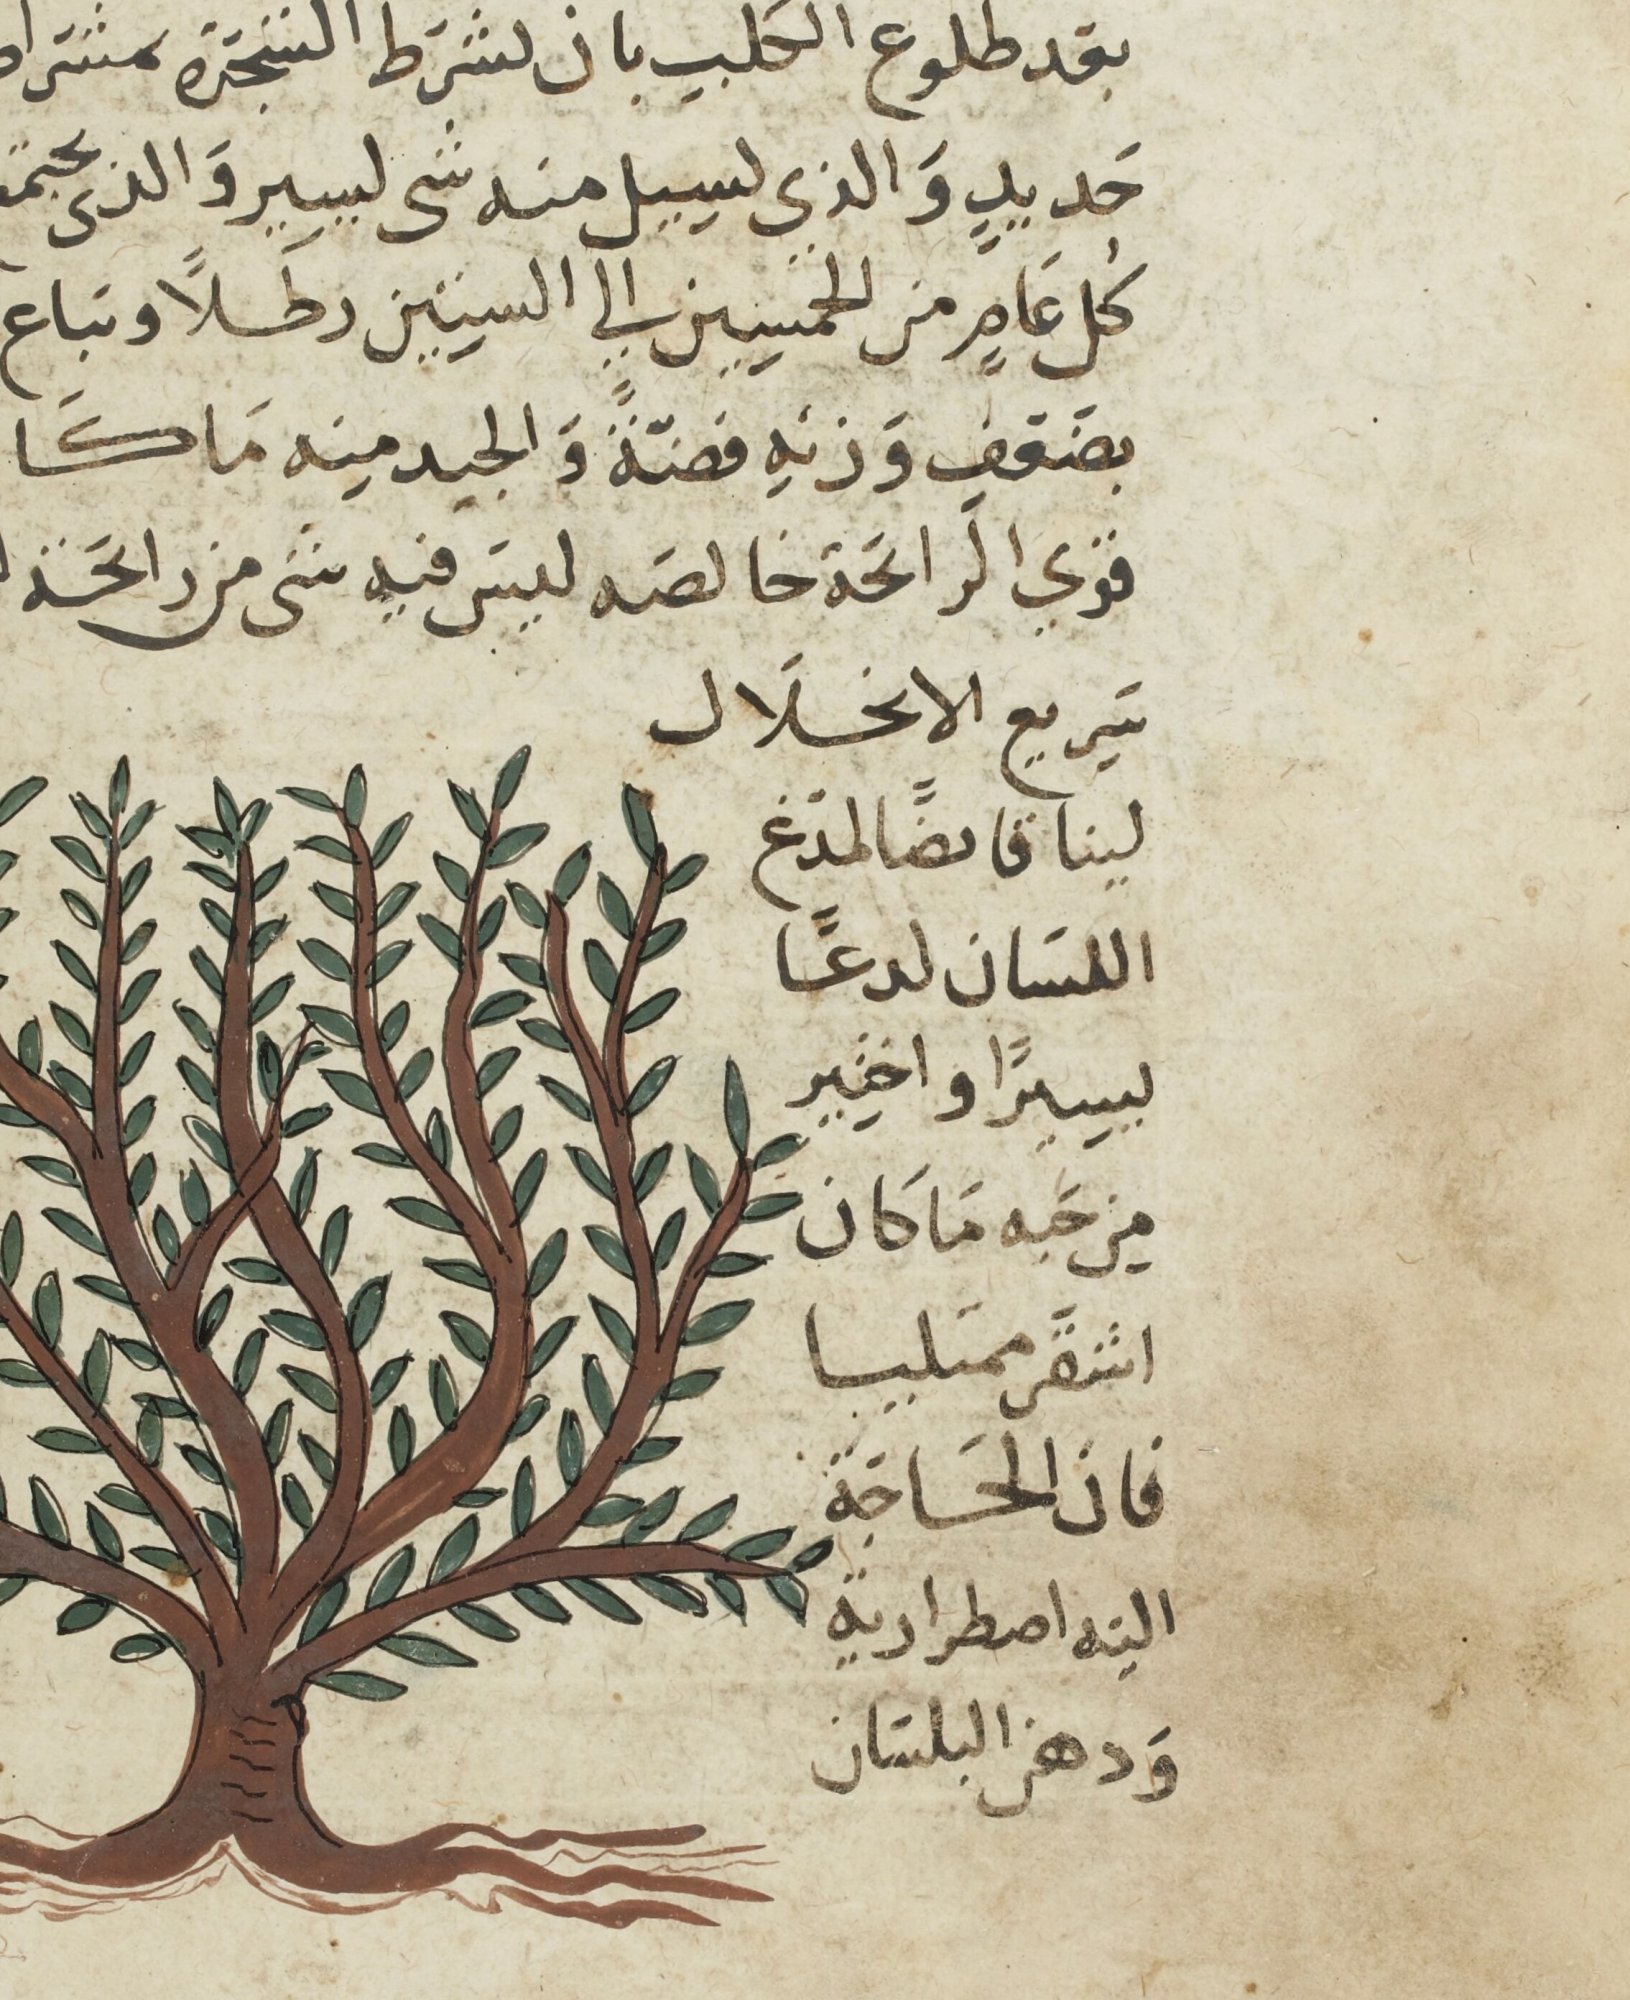 بعد طلوع الكلب بان تشرط الشجرة بمشراط
حَديدٍ وَالذي يسيل منه شى يسير وَالذى يجتمع
كُل عَامٍ من الخمسين الي الستين رطَلاً وتباع
بضعف وَزنهِ فضّةً وَالجيد منه مَاكَا
قوي الرَائحَة خالصه ليسَ فيهِ شى من رائحَة
سَريع الانحلال
لينا قابضًا يلذع
اللسَان لدعًا
يسيرًا واختير
من حَبه مَا كَان
اشقَر ممتليا
فان الحَاجَة
اليه اضطرارية
وَدهن البلسَان